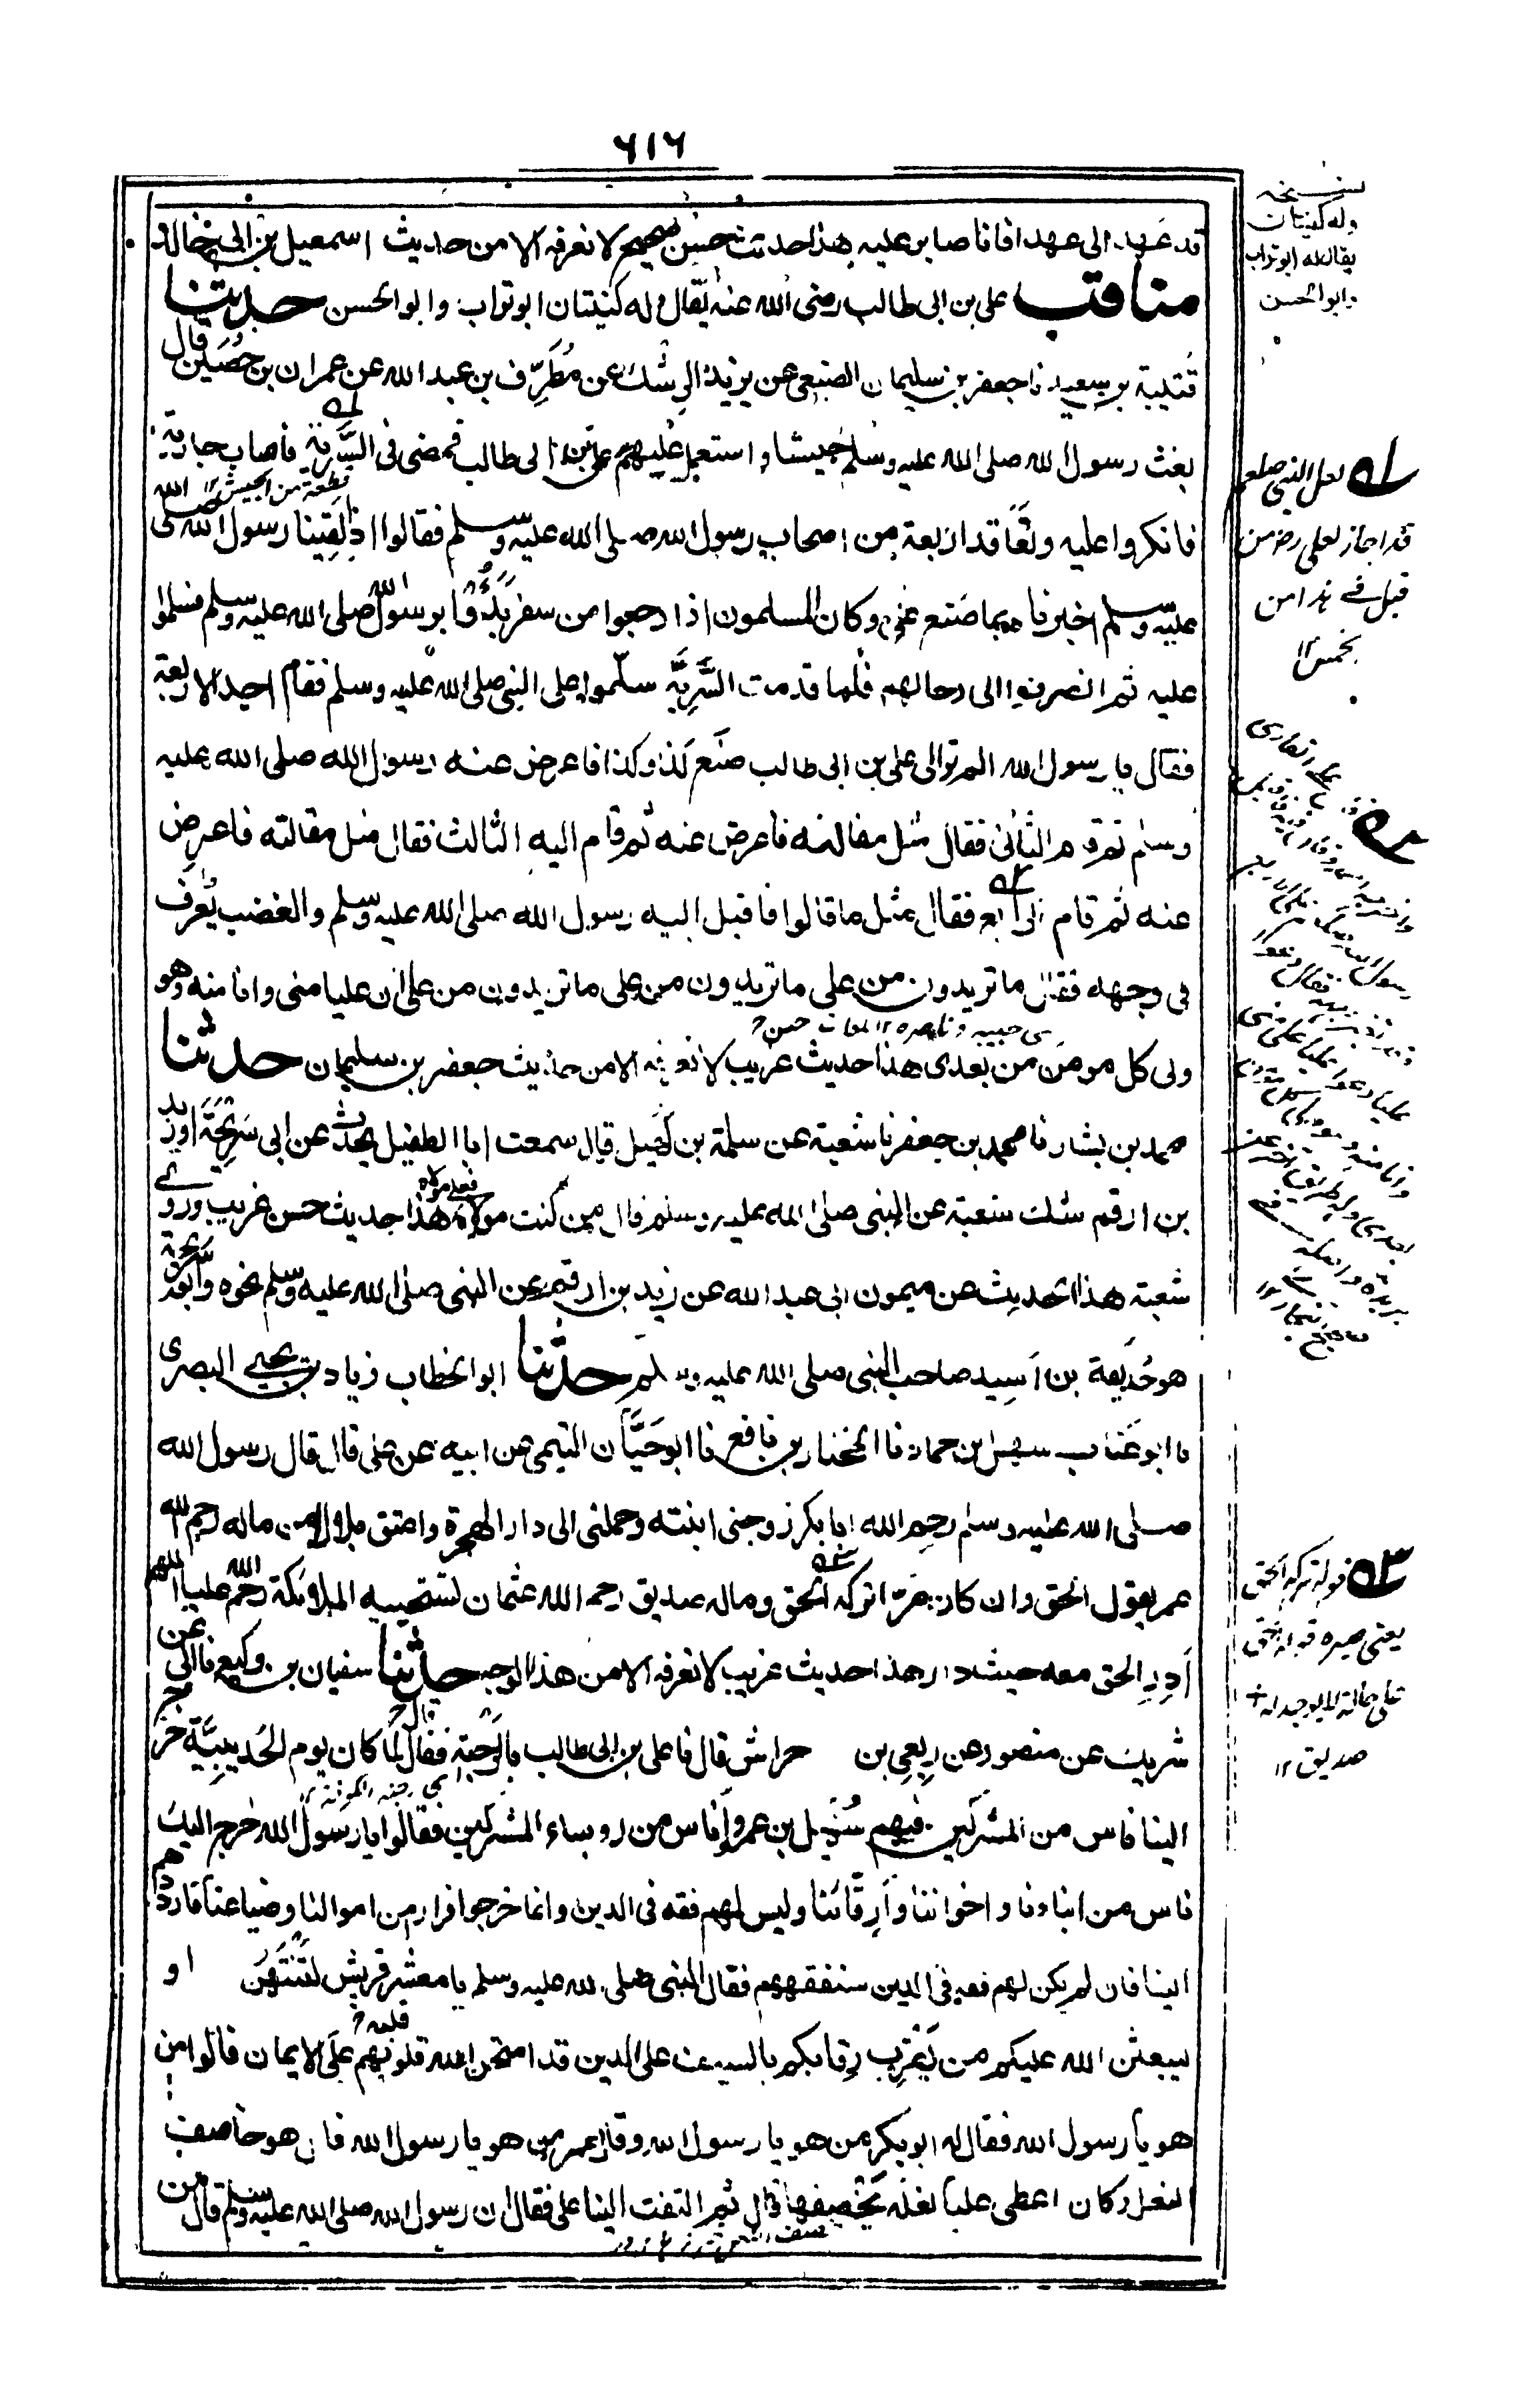 ٦١٦
قد عهد الى عهدا فانا صابر عليه هذا حديث حسن صحيح لا نعرفه الا من حديث اسمعيل بن ابى خالد
مناقب على بن ابى طالب رضى الله عنه يقال وله كنيتان ابو تراب وابو الحسن حدثنا
قتيبة بن سعيد نا جعفر بن سليمان الضبعى عن يزيد الرشك عن مُطَرِّف بن عبد الله عن عمران بن حُصَين قال
بعث رسول الله صلى الله عليه وسلم جيشا واستعمل عليهم على بن ابى طالب فمضى فى السَّرِيّة فاصاب جارية
قطعة من الجيش ١٢
فانكروا عليه وتعاقد اربعة من اصحاب رسول الله صلى الله عليه وسلم فقالوا اذا لقينا رسول الله صلى الله
عليه وسلم اخبرناه بما صنع على وكان المسلمون اذا رجعوا من سفر بدءوا برسول الله صلى الله عليه وسلم فسلموا
عليه ثم انصرفوا الى رحالهم فلما قدمت السَّرِيَّة سلّموا على النبى صلى الله عليه وسلم فقام احد الاربعة
فقال يا رسول الله الم تر الى على بن ابى طالب صنع كذا وكذا فاعرض عنه رسول الله صلى الله عليه
وسلم ثم قام الثانى فقال مثل مقالته فاعرض عنه ثم قام اليه الثالث فقال مثل مقالته فاعرض
عنه ثم قام الرابع فقال مثل ما قالوا فاقبل اليه رسول الله صلى الله عليه وسلم والغضب يُعرف
فى وجهه فقال ما تريدون من على ما تريدون من على ما تريدون من على ان عليا منى وانا منه وهو
ولى كل مومن من بعدى هذا حديث غريب لا نعرفه الا من حديث جعفر بن سليمان حدثنا
محمد بن بشار نا محمد بن جعفر نا شعبة عن سلمة بن كُهَيل قال سمعت ابا الطفيل يحدث عن ابى سَرِيْحَة او زيد
بن ارقم شك شعبة عن النبى صلى الله عليه وسلم قال من كنت مولاه فعلى مولاه هذا حديث حسن غريب وروى
شعبة هذا الحديث عن ميمون ابى عبد الله عن زيد بن ارقم عن النبى صلى الله عليه وسلم نحوه وابو سريحة
هو حُذيفة بن اَسِيد صاحب النبى صلى الله عليه وسلم حدثنا ابو الخطاب زياد بن يحيى البصرى
نا ابو عَتاب سهل بن حماد نا المختار بن نافع نا ابو حَيَّان التيمى عن ابيه عن على قال قال رسول الله
صلى الله عليه وسلم رحم الله ابا بكر زوجنى ابنته وحملنى الى دار الهجرة واعتق بلالا من ماله رحم الله
عمر يقول الحق وان كان مرا تركه الحق وماله صديق رحم الله عثمان تستحييه الملائكة رحم الله عليا اللهم
اَدِرِ الحق معه حيث دار هذا حديث غريب لا نعرفه الا من هذا الوجه حدثنا سفيان بن وكيع نا ابى عن
شريك عن منصور عن ربعى بن حراش قال نا على بن ابى طالب بالرحبة فقال لما كان يوم الحُديبِيَّة خرج
الينا ناس من المشركين فيهم سُهَيل بن عمرو واناس من روساء المشركين فقالوا يا رسول الله خرج اليك
ناس من ابناءنا واخواننا واَرِقّائنا وليس لهم فقه فى الدين وانما خرجوا فرارا من اموالنا وضياعنا فارددهم
الينا فان لم يكن لهم فقه فى الدين سنفقههم فقال النبى صلى الله عليه وسلم يا معشر قريش لتنتَهُنَّ او
ليبعثن الله عليكم من يَضرِب رِقابكم بالسيف على الدين قد امتحن الله قلوبهم على الايمان قالوا من
هو يا رسول الله فقال له ابو بكر من هو يا رسول الله وقال عمر من هو يا رسول الله قال هو خاصف
النعل وكان اعطى عليا نعله يَخْصِفها قال ثم التفت الينا على فقال ان رسول الله صلى الله عليه وسلم قال من
نسخه
وله كنيتان
يقال له ابو تراب
وابو الحسن
لعل النبى صلعم
قد اجاز لعلى رض من
قبل فى هذا من
الخمس ١٢
قوله تركه الحق
يعنى صيره قوله الحق
على حالة لا يوجد له
صديق ١٢